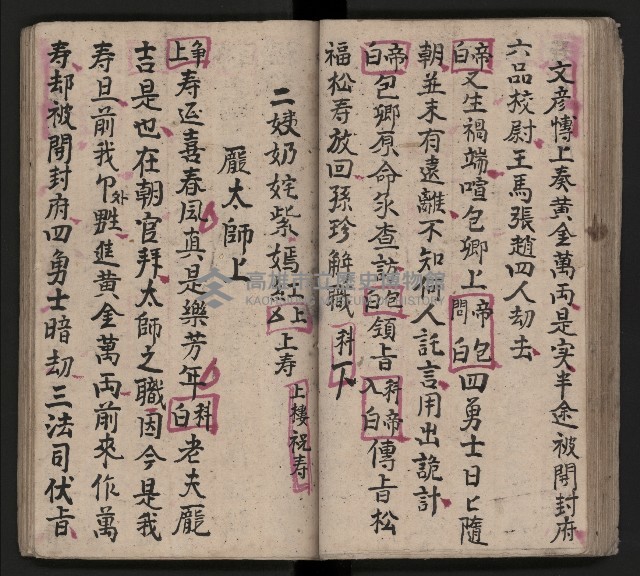 文彦博上奏黄金萬両是实半途被開封府
六品校尉王馬張趙四人刧去
帝白又生禍端喧包卿上帝問包白四勇士日匕隨
朝並未有遠離不知何人託言用出詭計
帝白包卿原命氽查訪包白領旨入科帝白傳旨松
福松寿放回孫珍解職科下
二姨奶姹紫嫣紅上又上寿
上接祝寿
龎太師上
上争寿延喜春風真是樂芳年科白老夫龎
吉是也在朝官拜太師之職因今是我
寿旦前我外甥進黄金萬両前來作萬
寿却被開封府四勇士暗刧三法司伏旨
高雄市立歷史博物館
KAOHSIUNG MUSEUM OF HISTORY